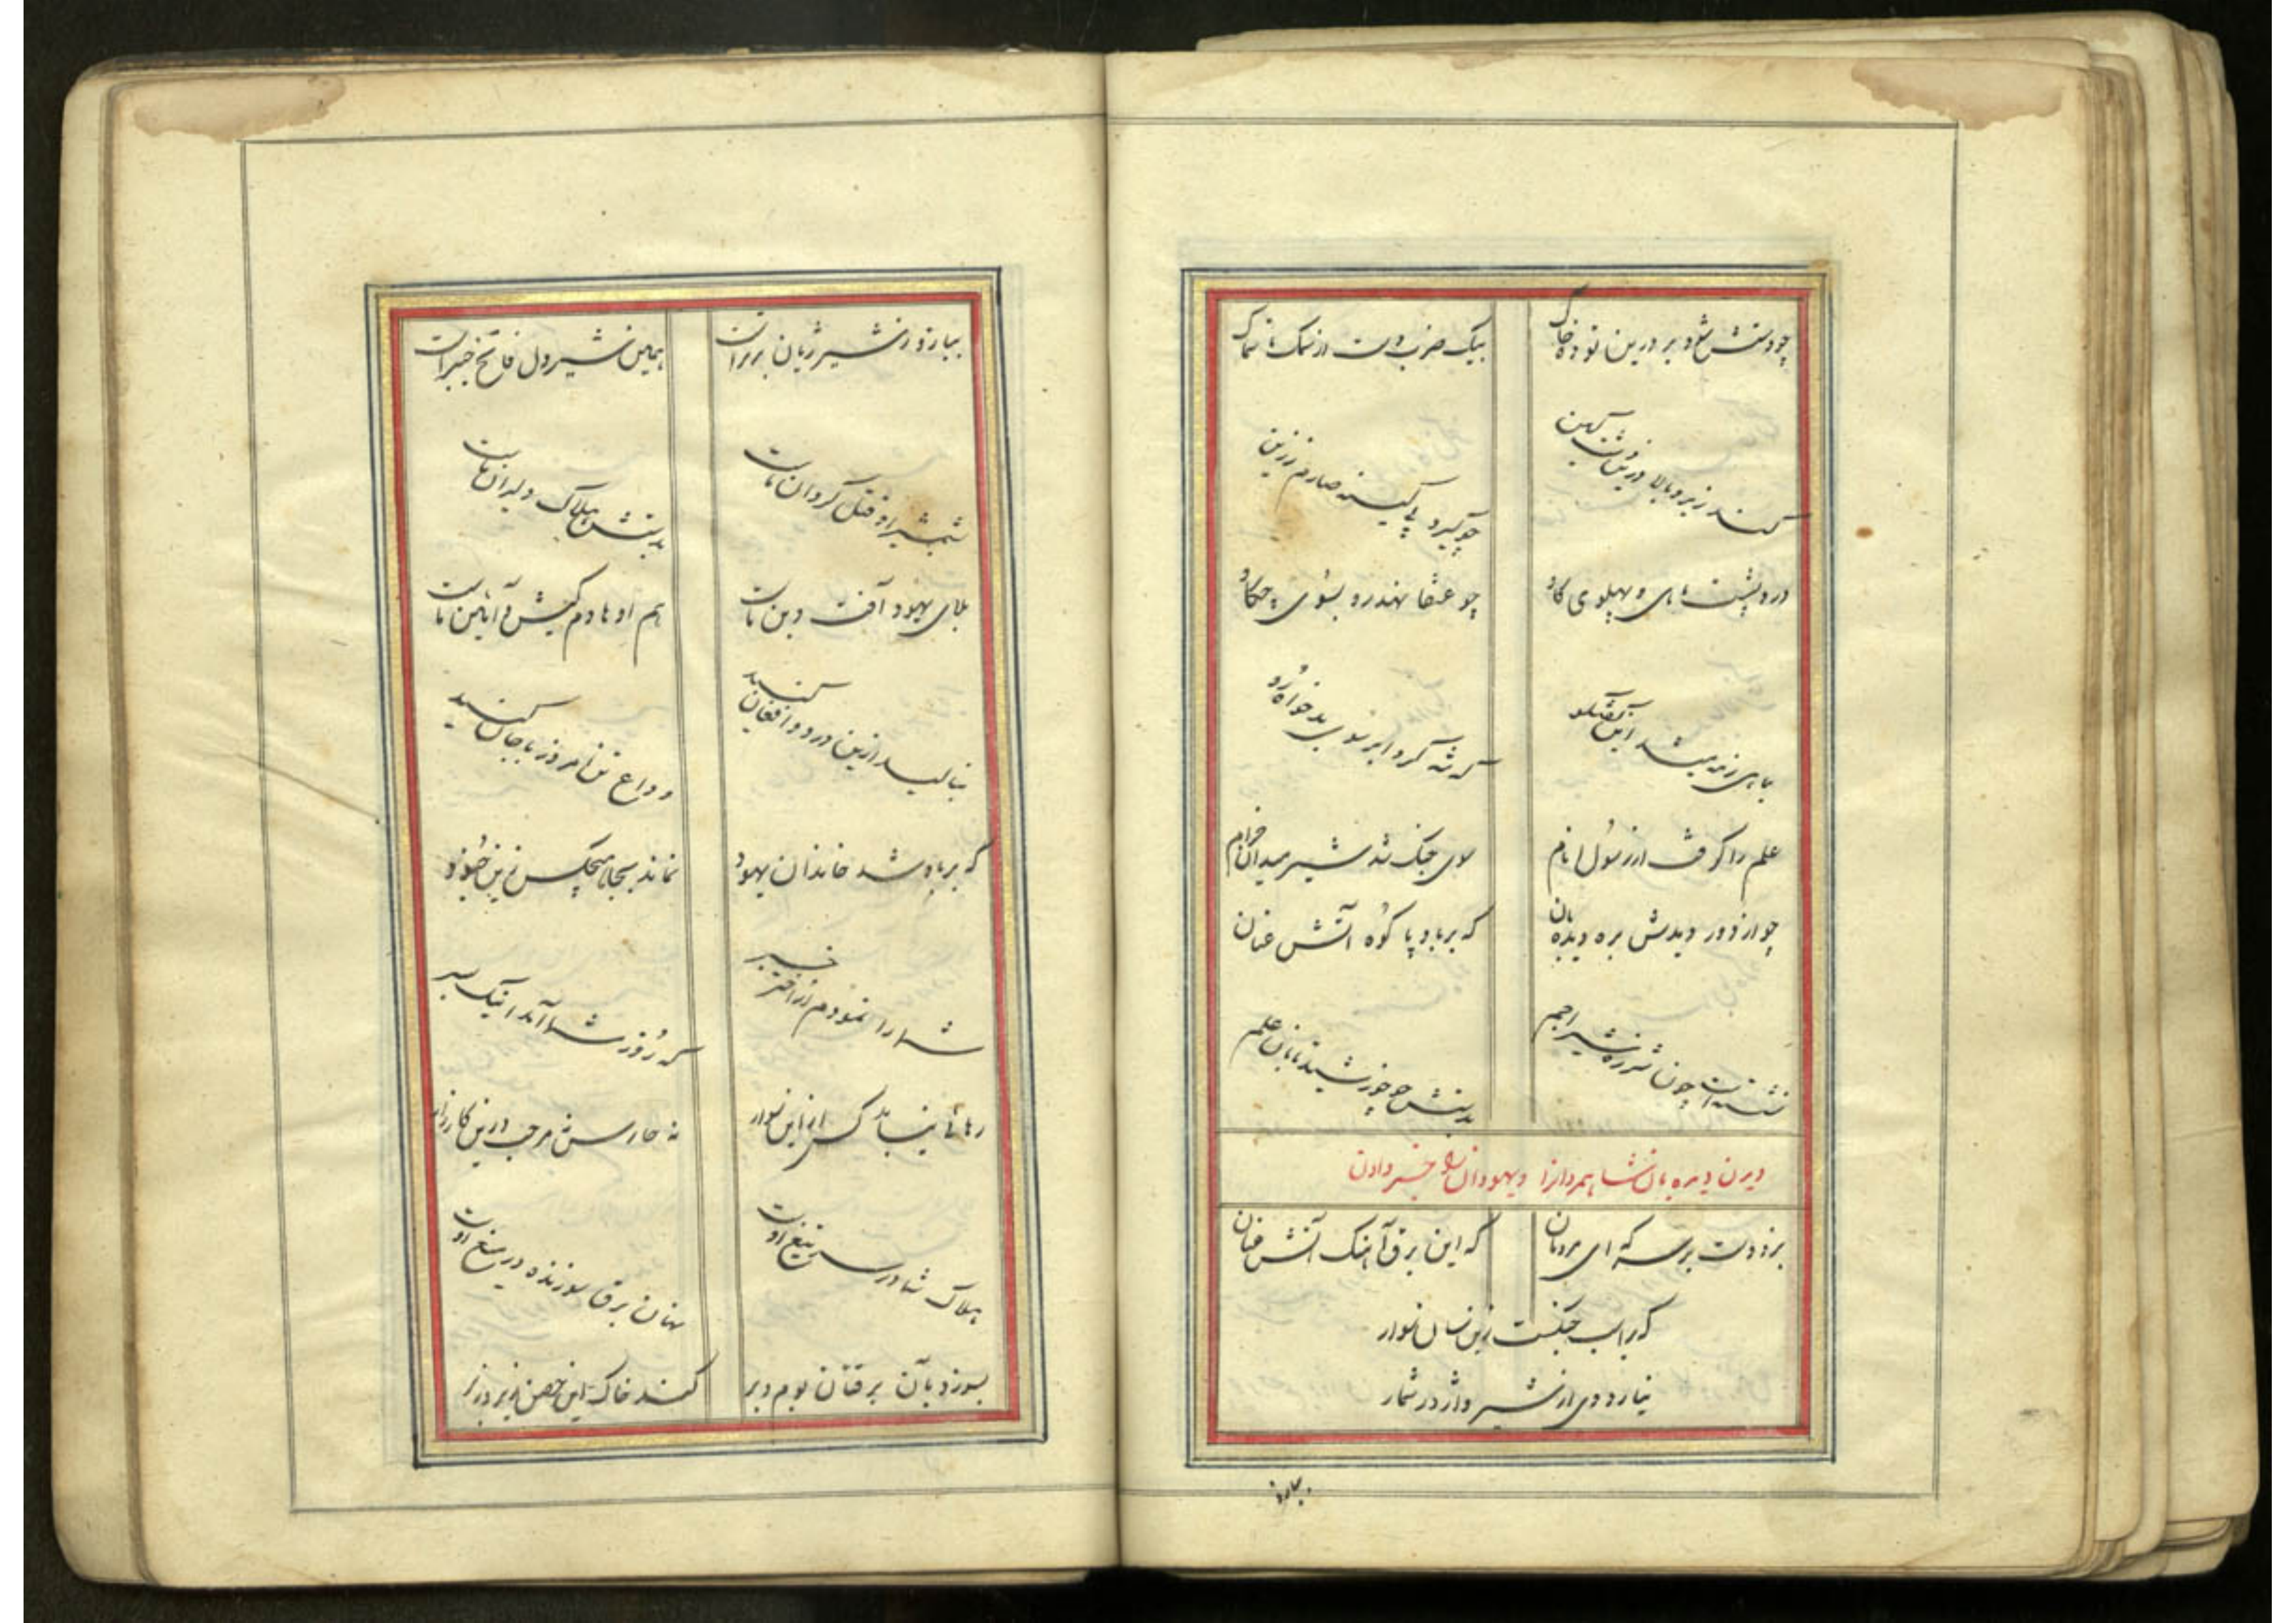 چو دستش شود بر درین توده خاک بیک ضرب دست از سمک تا سماک
کند زیر و بالا درین دشت کین چو گیرد پی کینه صارم ززین
درد پشت ماهی و پهلوی گاو چو عنقا نهد رو بسوی چکاو
بماهی زند میشد این گفتگو که شه کرد ابرسوی بدخواه رو
علم را گرفت از رسول انام سوی جنگ شد شیر میدان خرام
چو از دور دیدش بره دیده‌بان که بر باد پا کوه آتش عنان
نشسته است چون شرزه شیر اجم بدستش چو خورشید تابان علم
دیدن دیده بان شاه مردانرا و یهودان را خبر دادن
بزد دست بر سر که ای مردمان که این برق آهنگ آتش عنان
گر آید بجنگت زین سان سوار
نیارد دمی از شیر و اژدر شمار
بیارو
بیارو ز شیر ژیان برتر است همین شیردل فاتح خیبر است
شمشیر او قتل گردان ماست بدستش هلاک دلیران ماست
بلای یهود آفت دین ماست هم او هادم کیش و آئین ماست
بنالید ازین درد و افغان کنید وداع تن امروز با جان کنید
که بر باد شد خاندان یهود نماند بجا هیچکس زین جنود
شما را نمودم از اختر خبر که روز شما آمد اینک بسر
رهائی نیابد کس از این سوار نه حارس نه مرحب درین کارزار
هلاک شما در سر تیغ اوست نهان برق سوزنده در میغ اوست
بسوزد بآن برقتان بوم و بر کند خاک این حصن زیر و زبر